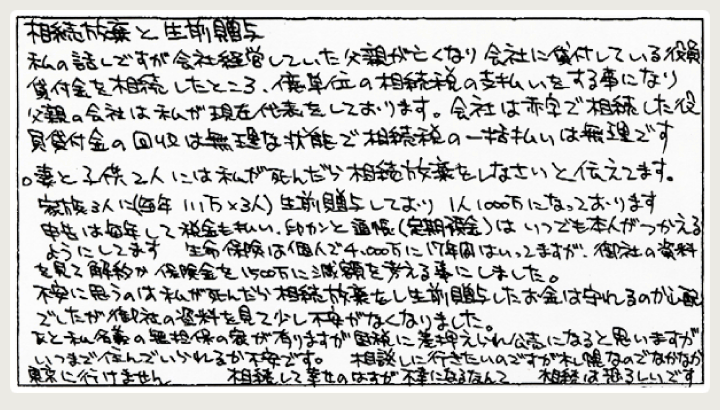 相続放棄と生前贈与
私の話しですが会社経営していた父親が亡くなり会社に貸付している役員
貸付金を相続したところ、億単位の相続税の支払いをする事になり
父親の会社は私が現在代表をしております。会社は赤字で相続した役
員貸付金の回収は無理な状態で相続税の一括払いは無理です
。妻と子供2人には私が死んだら相続放棄をしなさいと伝えてます。
家族3人に(毎年111万×3人)生前贈与しており 1人1000万になっております
申告は毎年して税金も払い、印カンと通帳(定期預金)はいつでも本人がつかえる
ようにしてます 生命保険は個人で4,000万に17年間はいってますが、御社の資料
を見て解約か保険金を1500万に減額を考える事にしました。
不安に思うのは私が死んだら相続放棄をし生前贈与したお金は守れるのか心配
でしたが御社の資料を見て少し不安がなくなりました。
あと私名義の無担保の家が有りますが国税に差押えられ公売になると思いますが
いつまで住んでいられるか不安です。 相談しに行きたいのですが札幌なのでなかなか
東京に行けません 相続して幸せのはずが不幸になるなんて 相続は恐ろしいです